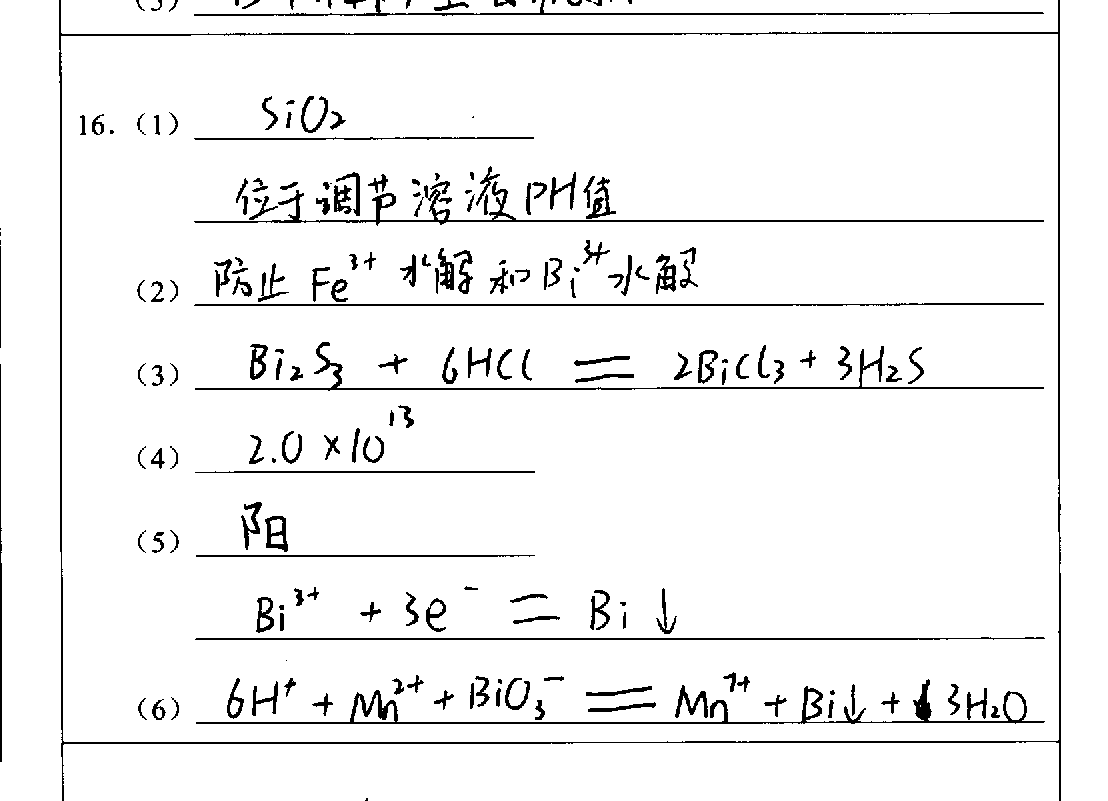 16.（1） SiO₂
位于调节溶液PH值
（2） 防止Fe³⁺水解和Bi³⁺水解
（3） Bi₂S₃ + 6HCl == 2BiCl₃ + 3H₂S
（4） 2.0×10¹³
（5） 阳
Bi³⁺ + 3e⁻ == Bi↓
（6） 6H⁺ + Mn²⁺ + BiO₃⁻ == Mn⁷⁺ + Bi↓ + 3H₂O